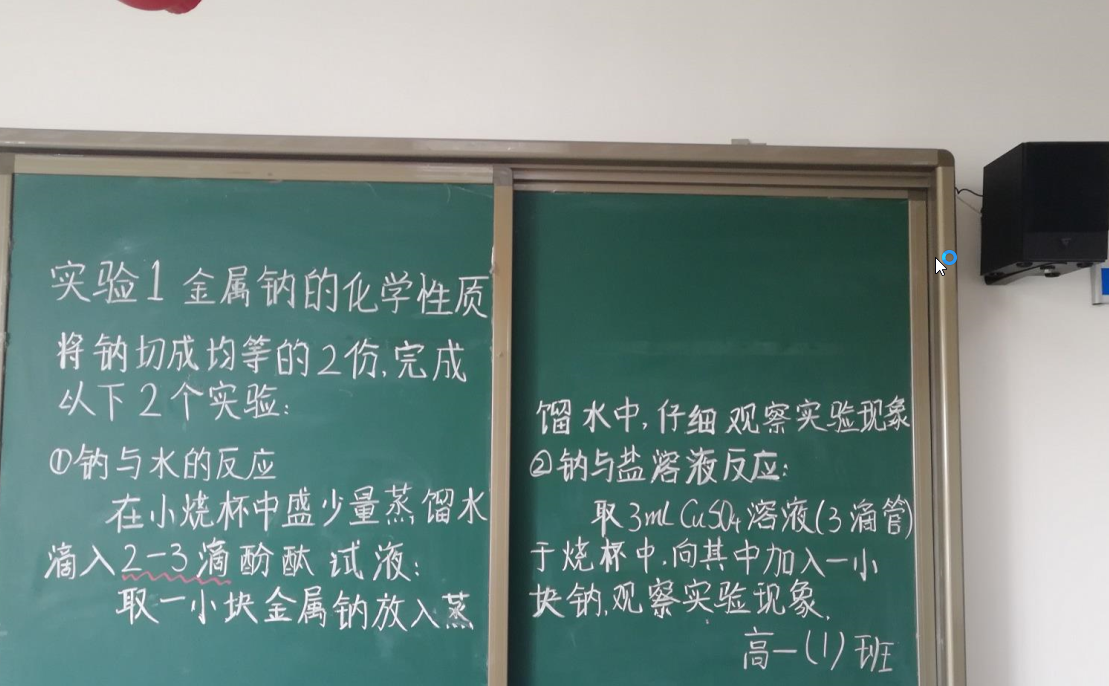 实验1 金属钠的化学性质
将钠切成均等的2份,完成
以下2个实验:
①钠与水的反应
在小烧杯中盛少量蒸馏水
滴入2-3滴酚酞试液:
取一小块金属钠放入蒸
馏水中,仔细观察实验现象
②钠与盐溶液反应:
取3mL CuSO₄溶液(3滴管)
于烧杯中.向其中加入一小
块钠,观察实验现象.
高一(1)班